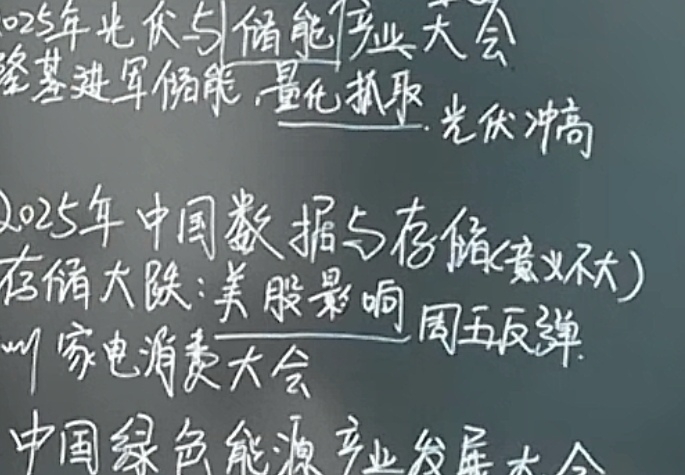 2025年光伏与储能产业大会
隆基进军储能，量化抓取．光伏冲高
2025年中国数据与存储(意义不大)
存储大跌：美股影响 周五反弹．
州家电消费大会
中国绿色能源产业发展大会